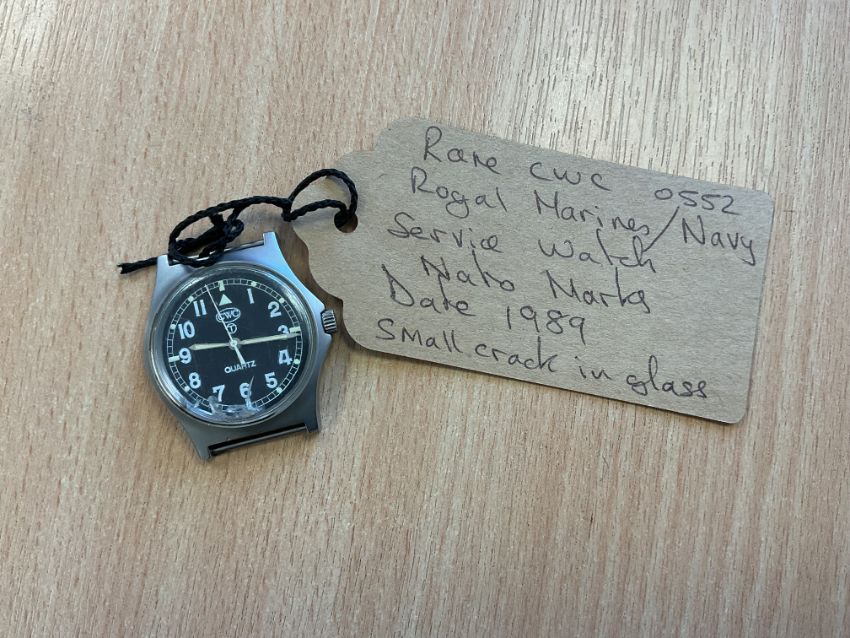 Rare CWC 0552
Royal Marines/Navy
Service Watch
Nato Marks
Date 1989
Small crack in glass
11 1
10 2
9 3
8 4
7 6 5
CWC
T
QUARTZ